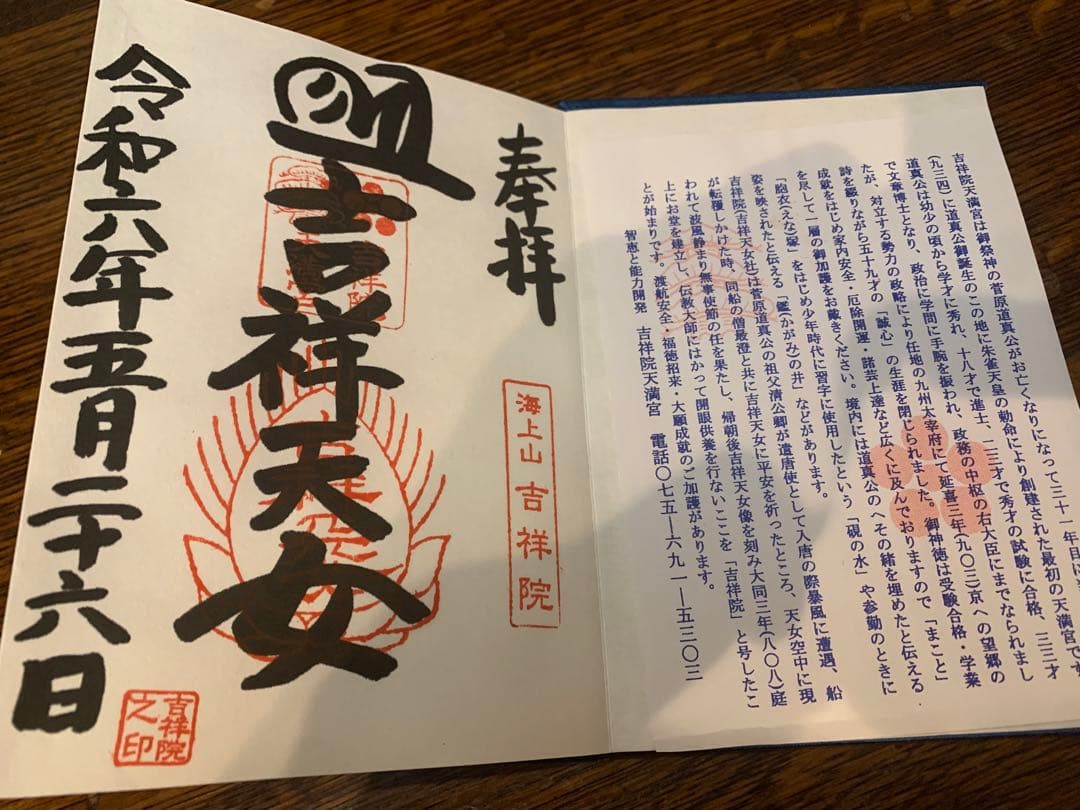 奉拝
海上山 吉祥院
吉祥天女
令和六年五月二十六日
吉祥院
之印
吉祥院天満宮は御祭神の菅原道真公がお亡くなりになって三十一年目に
(九三四)に道真公御誕生のこの地に朱雀天皇の勅命により創建された最初の天満宮です
道真公は幼少の頃から学才に秀れ、十八才で進士、二三才で秀才の試験に合格、三三才
で文章博士となり、政治に学問に手腕を振われ、政務の中枢の右大臣にまでなられまし
たが、対立する勢力の政略により任地の九州太宰府にて延喜三年(九〇三)京への望郷の
詩を綴りながら五十九才の「誠心」の生涯を閉じられました。御神徳は受験合格・学業
成就をはじめ家内安全・厄除開運・諸芸上達など広くに及んでおりますので「まこと
を尽して一層の御加護をお戴きください。境内には道真公のへその緒を埋めたと伝える
「胞衣(えな)塚」をはじめ少年時代に習字に使用したという「硯の水」や参勤のときに
姿を映されたと伝える「鑑(かがみ)の井」などがあります。
吉祥院(吉祥天女社)は菅原道真公の祖父清公卿が遣唐使として入唐の際暴風に遭遇、船
が転覆しかけた時、同船の僧最澄と共に吉祥天女に平安を祈ったところ、天女空中に現
われて波風静まり無事使節の任を果たし、帰朝後吉祥天女像を刻み大同三年(八〇八)庭
上にお堂を建立し、伝教大師にはかって開眼供養を行ないここを「吉祥院」と号したこ
とが始まりです。渡航安全・福徳招来・大願成就のご加護があります。
智恵と能力開発 吉祥院天満宮 電話〇七五―六九一―五三〇三